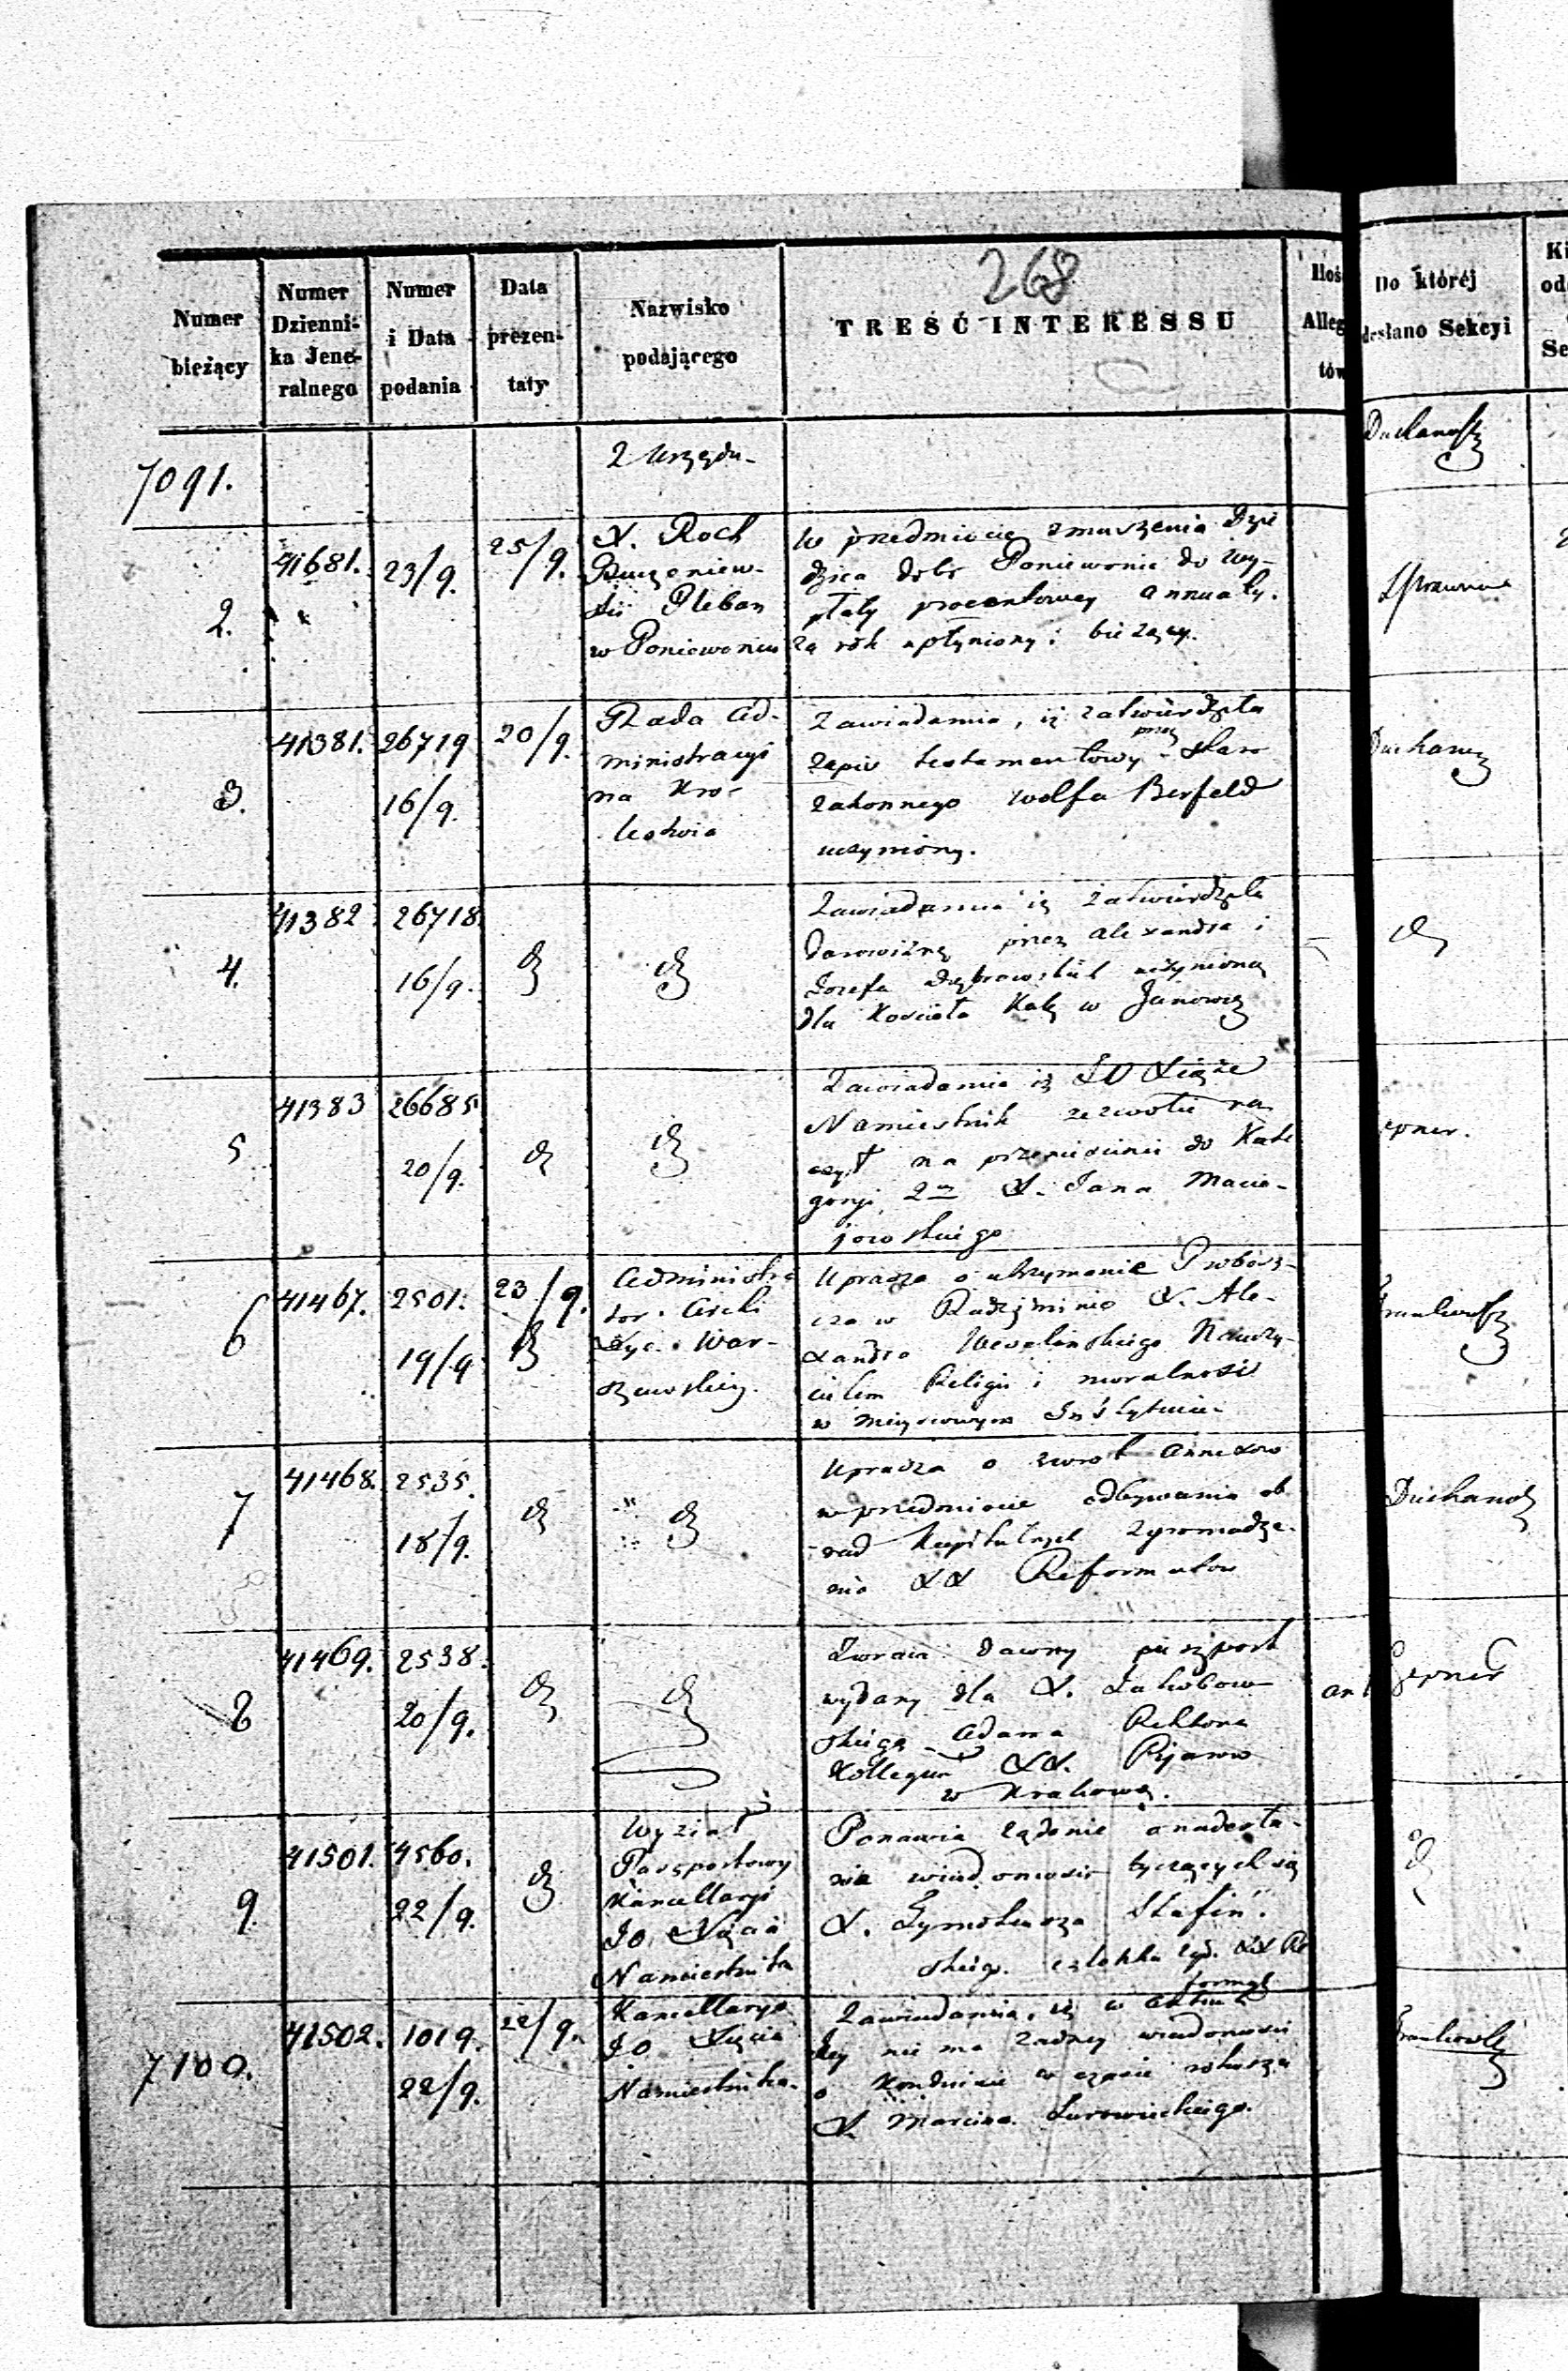 268
Numer bieżący
Numer Dzienni- ka Jene- ralnego
Numer i Data podania
Data prezen- taty
Nazwisko podającego
TREŚĆ INTERESSU
Iloś Alleg tów
Do któréj
desłano Sekcyi
7091.
Z Urzędu
2.
41681.
23/9.
25/9.
X. Roch
Pleban
w Poniewoniu
W przedmiocie zmuszenia Dzie
dzica dóbr Poniewonie do wy-
płaty procentowey annuaty.
za rok upłyniony i bieżący.
3.
41381.
26719
16/9.
20/9.
Rada Ad-
ministracyi
na Kró-
lestwia
Zawiadamia, iż zatwierdzeta
przez
zapis testamentowy staro
zakonnego Wolfa Berfeld
uczyniony.
4.
41382
26718.
16/9.
Zawiadamia iż zatwierdzeła
darowiznę przez Alexandra i
Jozefa Dąbrowskich uczynioną
dla Kościoła Katę w Janowie
5
41383
26685
20/9.
Zawiadamia iż JO Xiąże
Namiestnik zezwolić ra
czył na przeniesienie do Kate
goryi 2ej X. Jana Macie-
jowskiego
6
41467.
2501.
19/9
23/9.
Administra
tor Archi
Dyc. War-
szawskiey.
Uprasza o utrzymanie Probosz-
cza w Radziminie X. Ale-
xandra Wesolińskiego Nauczy-
cielem Religii i moralności
w mieyscowym Instytucie
7
41468.
2535.
18/9.
Uprasza o zwrot annexów
w przedmiocie odbywania ob
rad Kapitulnych Zgromadze-
nia XX Reformatów
Duchano
8
41469.
2538.
20/9.
Zwraca dawny paszport
wydany dla X. Jakubow
skiego Adama Rektora
Kollegium XX. Pijarów
w Krakowie.
9.
41501.
4560.
22/9.
Wydział
Paszportowy
Kancellaryi
JO Xięcia
Namiestnika
Ponawia żądanie o nadesła-
nie wiadomości tyczących się
X. Tymoteusza Stafiń-
skiego członka zgr. XX Re
format
7100.
41502.
1019.
22/9.
22/9.
Kancellarya
JO Xięcia
Namiestnika.
Zawiadamia, iż w aktach
Jey nie ma żadney wiadomości
o Konduicie w czasie rokoszu
X. Marcina Surowieckiego.